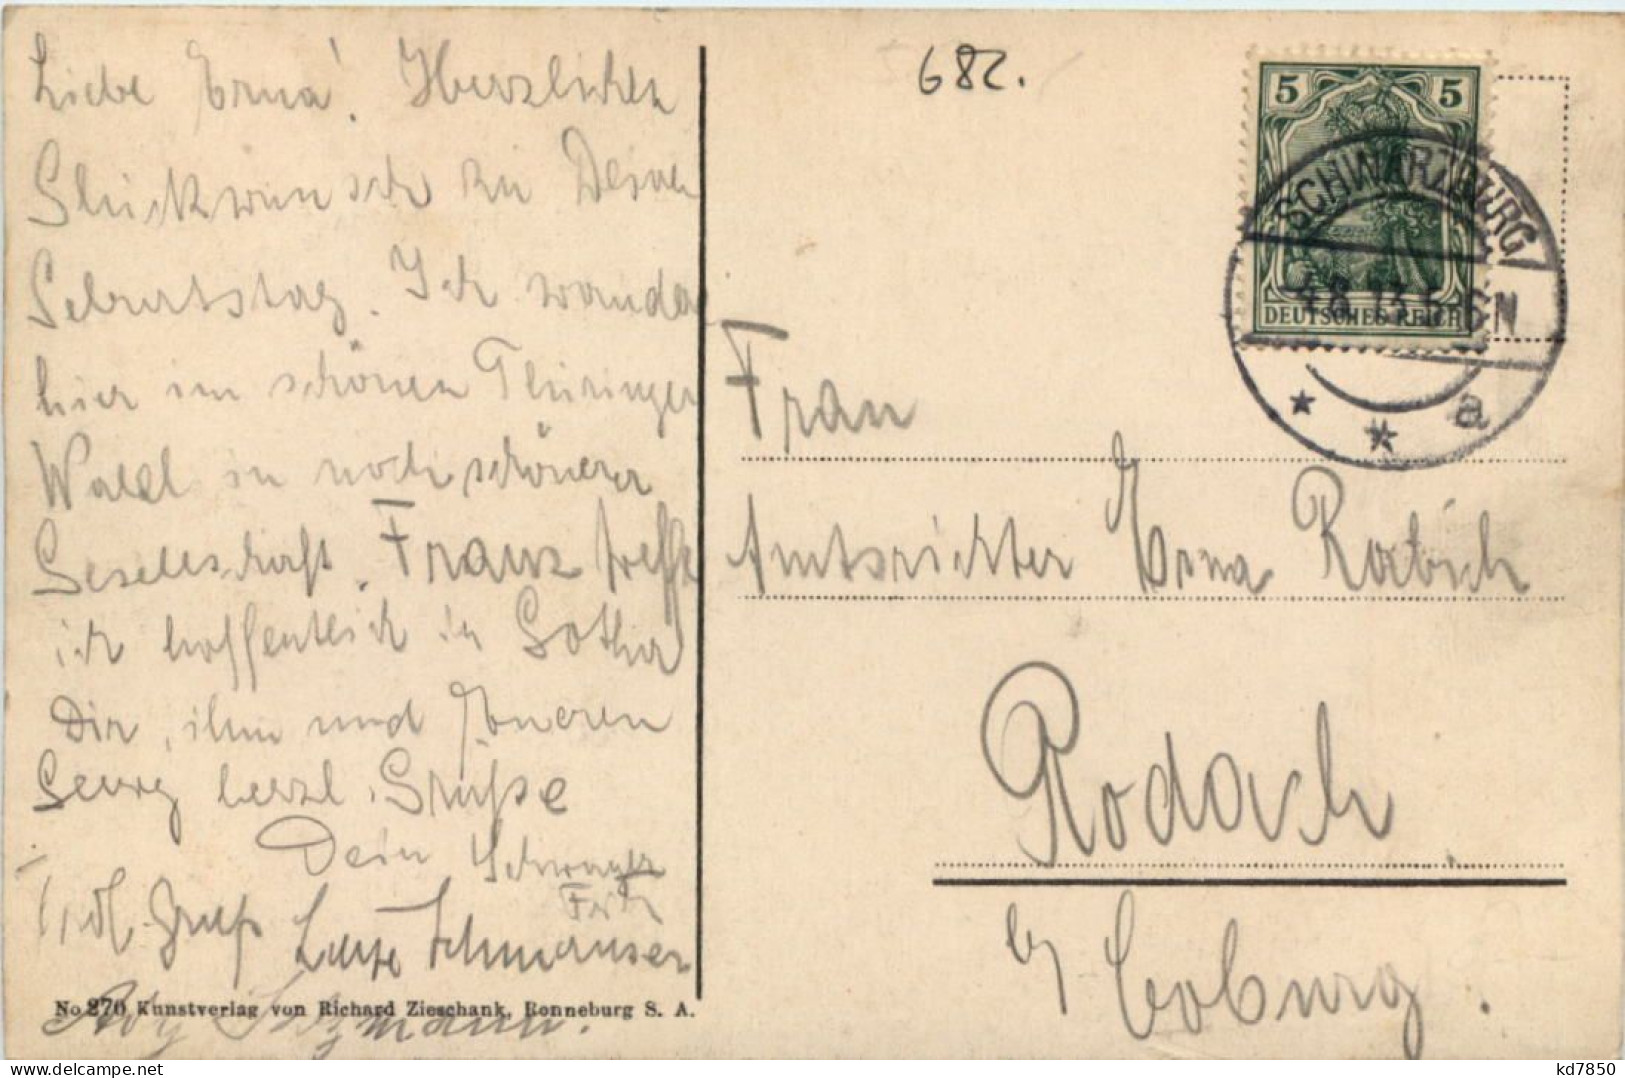 Liebe Erna! Herzlichen
Glückwunsch zu Deinem
Geburtstag. Ich wandere
hier im schönen Thüringer
Wald in noch schönerer
Gesellschaft. Franz treffe
ich hoffentlich in Gotha
Dir, ihm und Eueren
Georg herzl. Grüße
Dein Schwager
Fritz
Gruß
Schmauser
No 270 Kunstverlag von Richard Zieschank, Ronneburg S. A.
682.
5 5
DEUTSCHES REICH
SCHWARZBURG
4.6.13. 5-6N
* * a
Frau
Amtsrichter Erna Rabich
Rodach
b/ Coburg.
kd7850